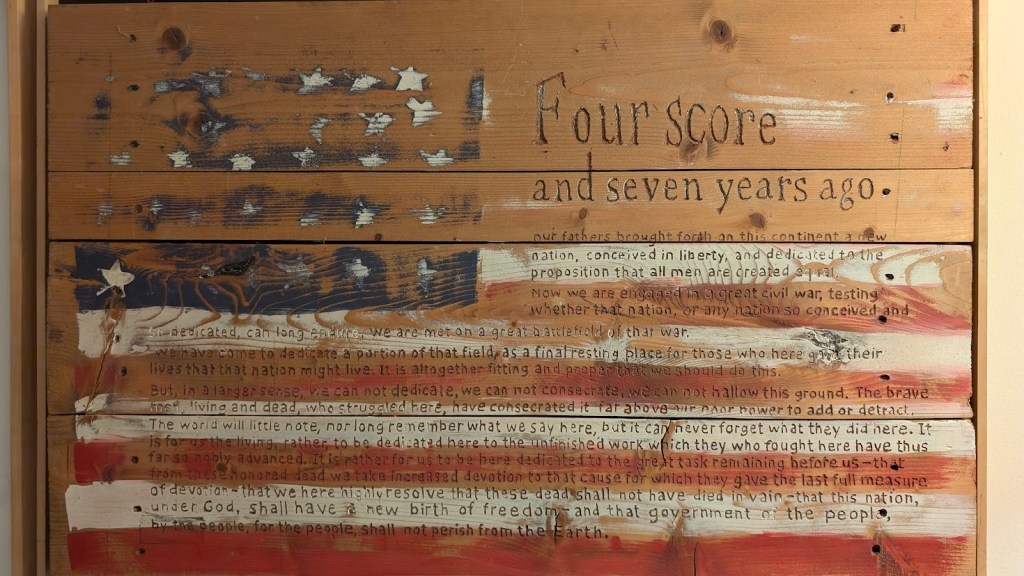 Four score
and seven years ago
our fathers brought forth on this continent a new
nation, conceived in liberty, and dedicated to the
proposition that all men are created equal.
Now we are engaged in a great civil war, testing
whether that nation, or any nation so conceived and
so dedicated, can long endure. We are met on a great battlefield of that war.
We have come to dedicate a portion of that field, as a final resting place for those who here gave their
lives that that nation might live. It is altogether fitting and proper that we should do this.
But, in a larger sense, we can not dedicate, we can not consecrate, we can not hallow this ground. The brave
men, living and dead, who struggled here, have consecrated it far above our poor power to add or detract.
The world will little note, nor long remember what we say here, but it can never forget what they did here. It
is for us the living, rather, to be dedicated here to the unfinished work which they who fought here have thus
far so nobly advanced. It is rather for us to be here dedicated to the great task remaining before us - that
from these honored dead we take increased devotion to that cause for which they gave the last full measure
of devotion - that we here highly resolve that these dead shall not have died in vain - that this nation,
under God, shall have a new birth of freedom - and that government of the people,
by the people, for the people, shall not perish from the Earth.